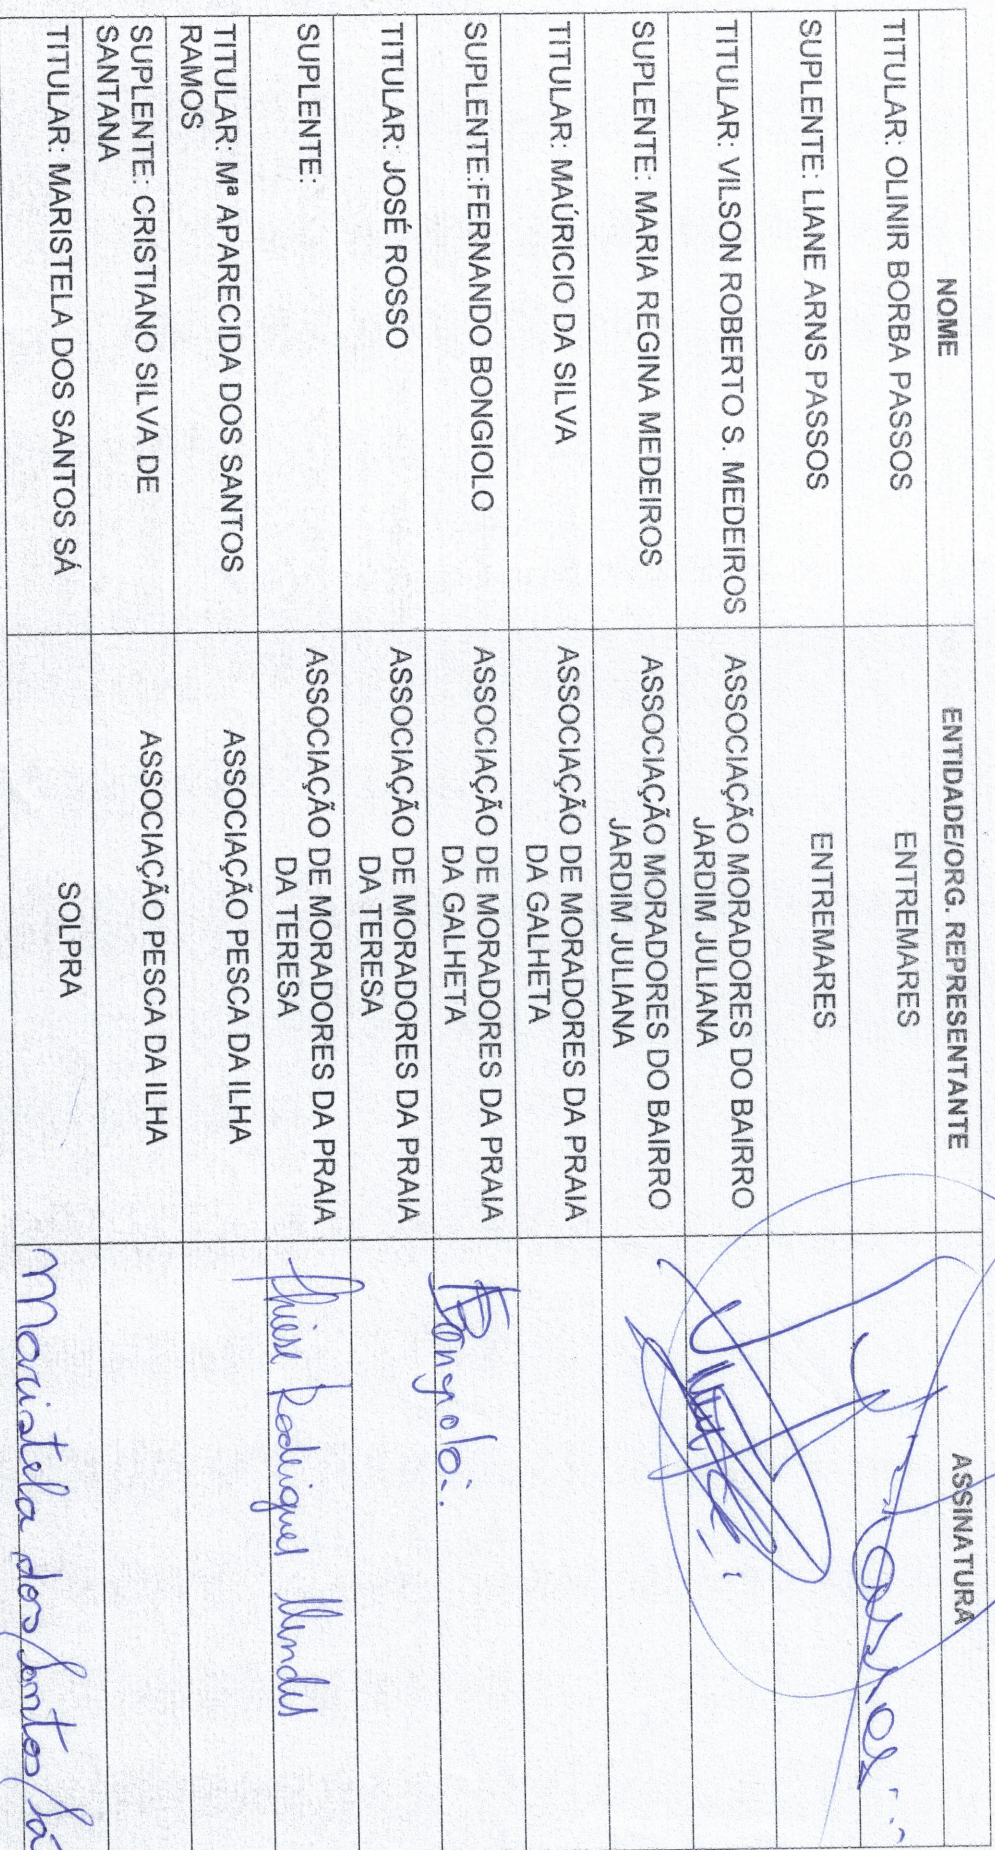 NOME ENTIDADE/ORG. REPRESENTANTE ASSINATURA
TITULAR: OLINIR BORBA PASSOS ENTREMARES
SUPLENTE: LIANE ARNS PASSOS ENTREMARES
TITULAR: VILSON ROBERTO S. MEDEIROS ASSOCIAÇÃO MORADORES DO BAIRRO
JARDIM JULIANA
SUPLENTE: MARIA REGINA MEDEIROS ASSOCIAÇÃO MORADORES DO BAIRRO
JARDIM JULIANA
TITULAR: MAÚRICIO DA SILVA ASSOCIAÇÃO DE MORADORES DA PRAIA
DA GALHETA
SUPLENTE:FERNANDO BONGIOLO ASSOCIAÇÃO DE MORADORES DA PRAIA
DA GALHETA
TITULAR: JOSÉ ROSSO ASSOCIAÇÃO DE MORADORES DA PRAIA
DA TERESA
SUPLENTE: ASSOCIAÇÃO DE MORADORES DA PRAIA
DA TERESA
Rodrigues Mendes
TITULAR: Mª APARECIDA DOS SANTOS
RAMOS
ASSOCIAÇÃO PESCA DA ILHA
SUPLENTE: CRISTIANO SILVA DE
SANTANA
ASSOCIAÇÃO PESCA DA ILHA
TITULAR: MARISTELA DOS SANTOS SÁ SOLPRA Maristela dos Santos Sá